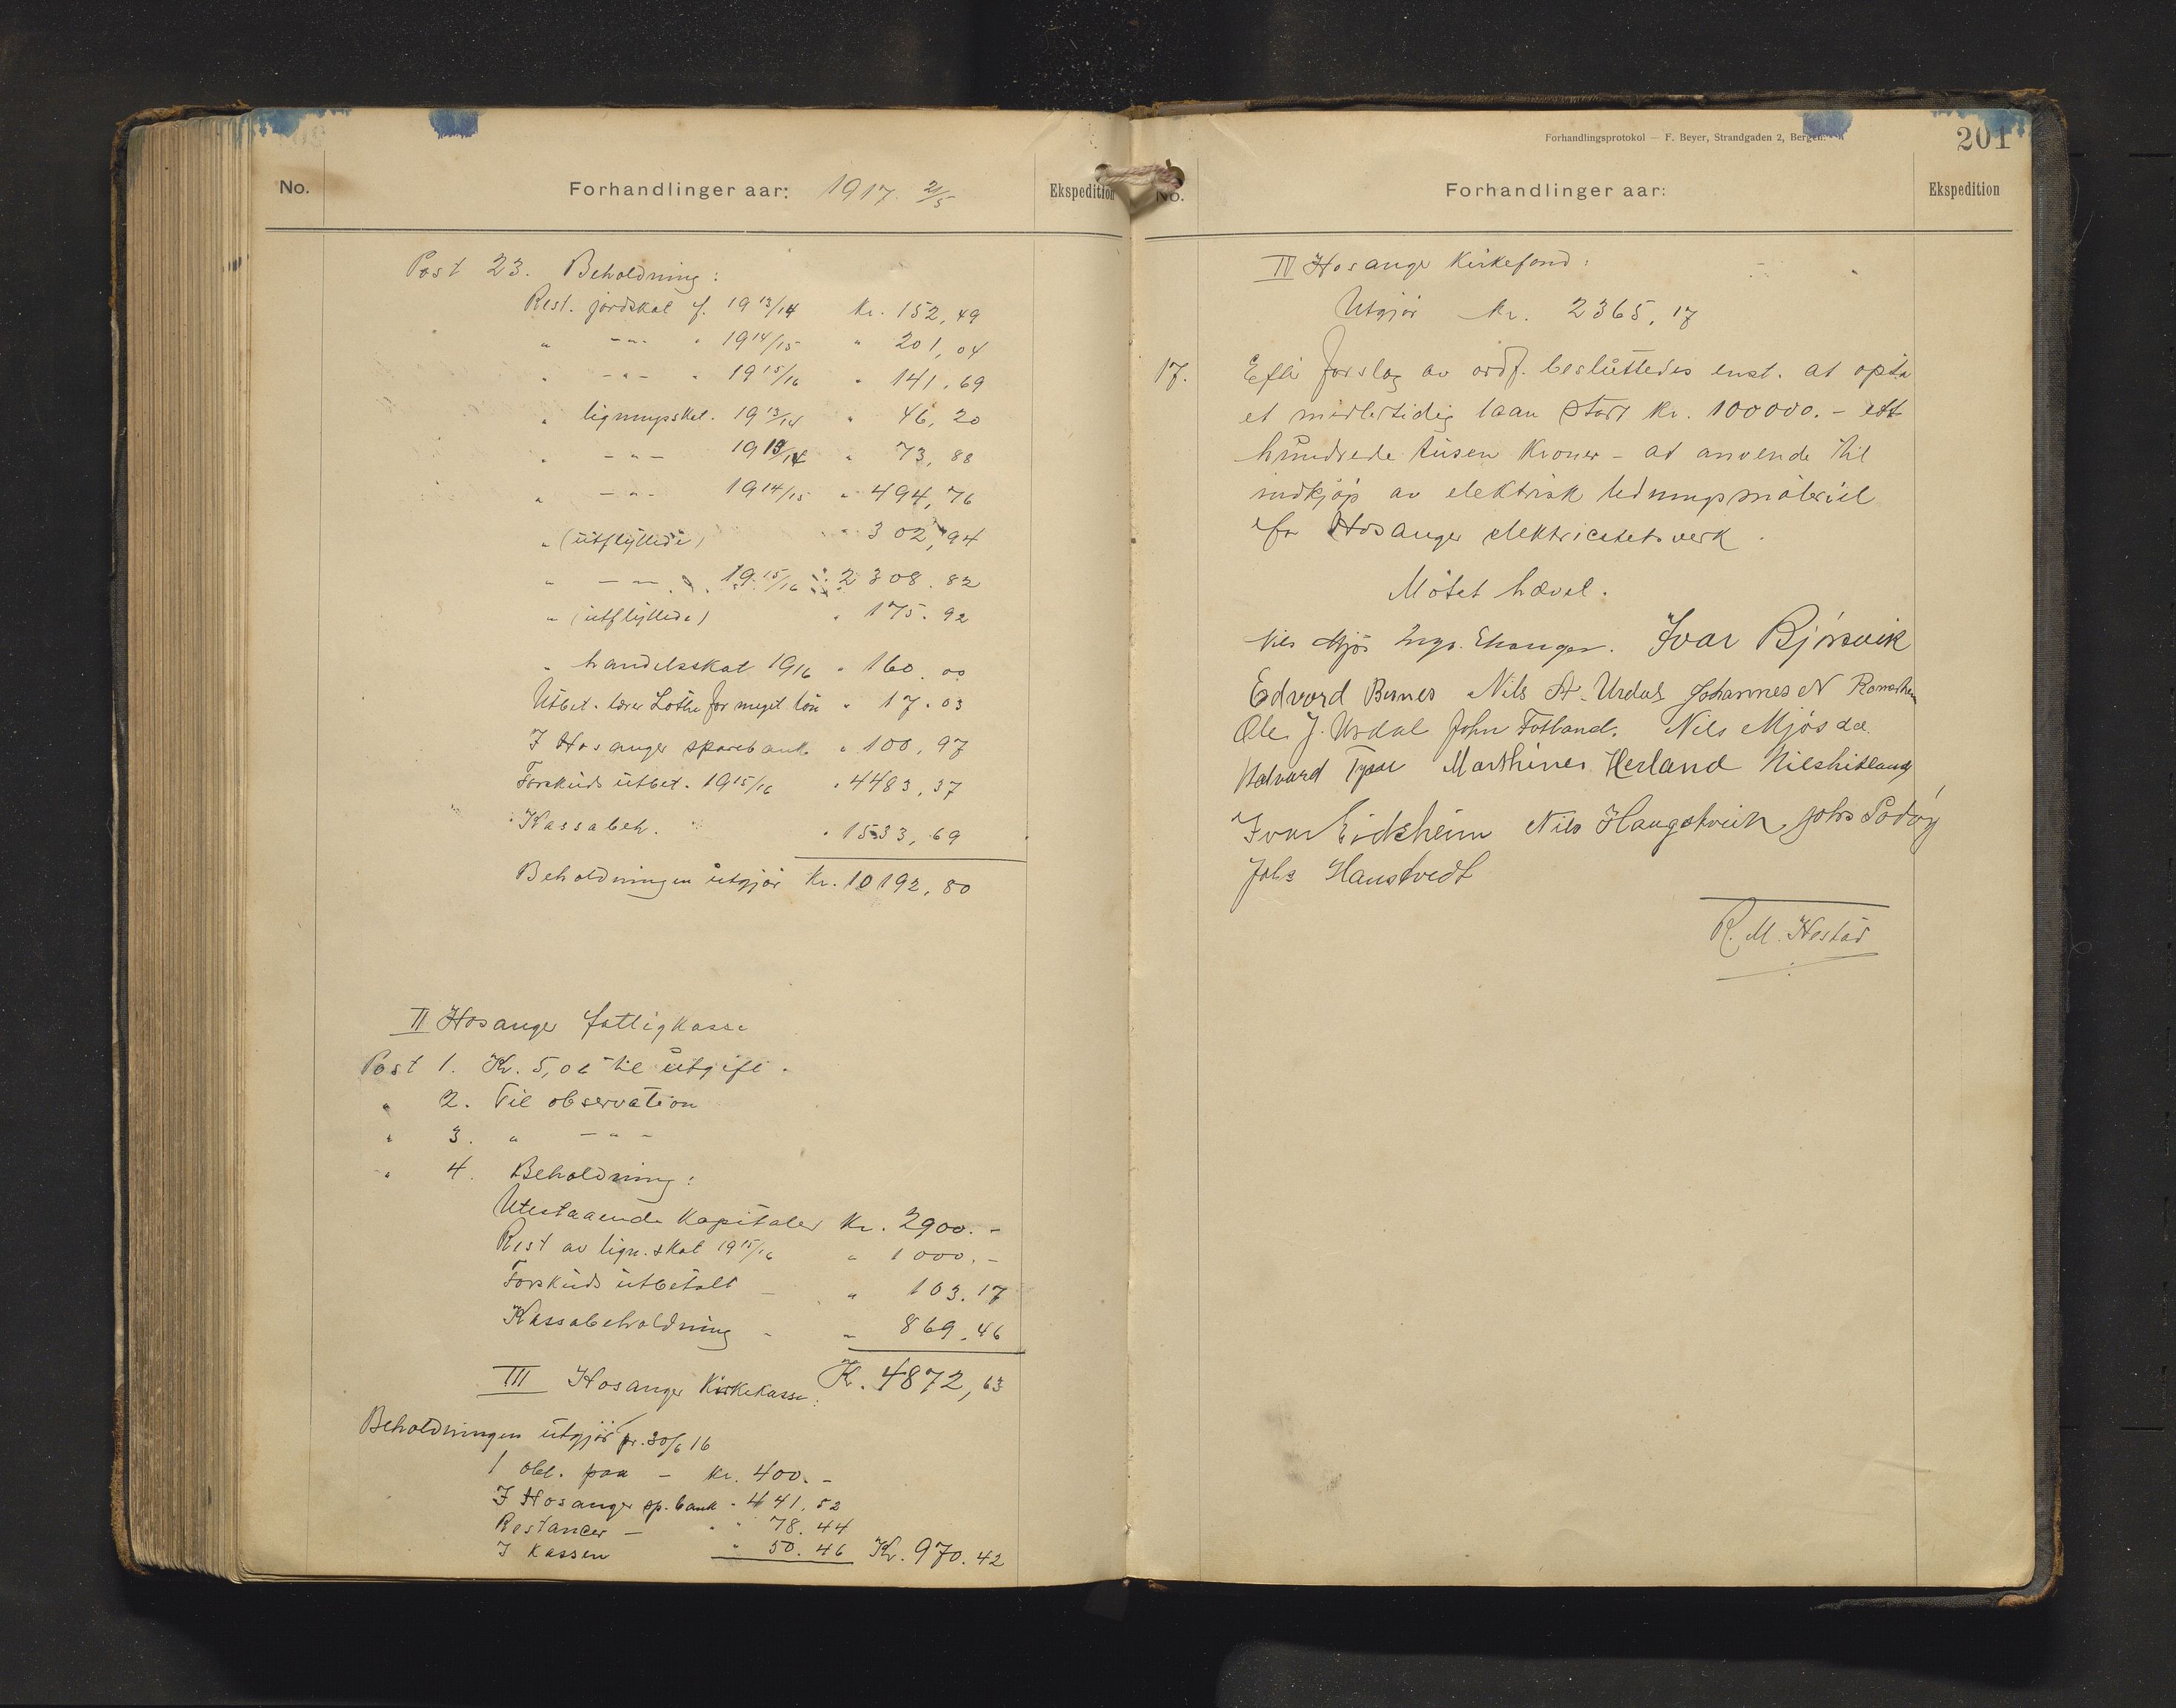 No. Forhandlinger aar: 1917. 2/5 Ekspedition
Post 23. Beholdning:
Rest. jordskat f. 19 13/14 Kr. 152,49
" -"- " 19 14/15 " 201,04
" -"- " 19 15/16 " 141,69
" ligningsskat. 19 13/14 " 46,20
" -"- 19 13/14 " 73,88
" -"- 19 14/15 " 494,76
" (utflyttede) " 302,94
" -"- 19 15/16 " 2308.82
" (utflyttede) " 175.92
" handelsskat 1916 " 160.00
Utbet. lærer Lothe for meget løn " 17.03
I Hosanger sparebank " 100,97
Forskuds utbet. 19 15/16 " 4483,37
Kassabeh. " 1533,69
Beholdningen utgjør Kr. 10192,80
II Hosanger fattigkasse
Post 1. Kr. 5,06 til utgift.
" 2. Til observation
" 3. " -"-
" 4. Beholdning:
Utestaaende Kapitaler Kr. 2900.-
Rest av lign.skat 19 15/16 " 1000.-
Forskuds utbetalt - " 103.17
Kassabeholdning - " 869.46
K. 4872,63
III Hosanger Kirkekasse:
Beholdningen utgjør pr. 30/6 16
1 obl. paa - Kr. 400.-
I Hosanger sp.bank " 441.52
Restancer - " 78.44
I kassen " 50.46 Kr. 970.42
Forhandlingsprotokol — F. Beyer, Strandgaden 2, Bergen.
201
No. Forhandlinger aar: Ekspedition
IV Hosanger Kirkefond:
Utgjør Kr. 2365,17
17. Efter forslag av ordf. besluttedes enst. at opta
et midlertidig laan stort Kr. 100000.- ett
hundrede tusen Kroner - at anvende til
indkjøp av elektrisk ledningsmateriel
for Hosanger elektricitetsverk.
Møtet hævet.
Nils Mjøs Ingv. Ivar Bjørsvik
Edvard Bernes Nils A. Urdal Johannes N Romarheim
Ole J. Urdal John Fotland. Nils Mjøsdal
Halvard Tysse Marthines Herland Nils
Ivar Eidsheim Nils Haugstveit Johs
Johs Haustvedt
R. M. Hestad